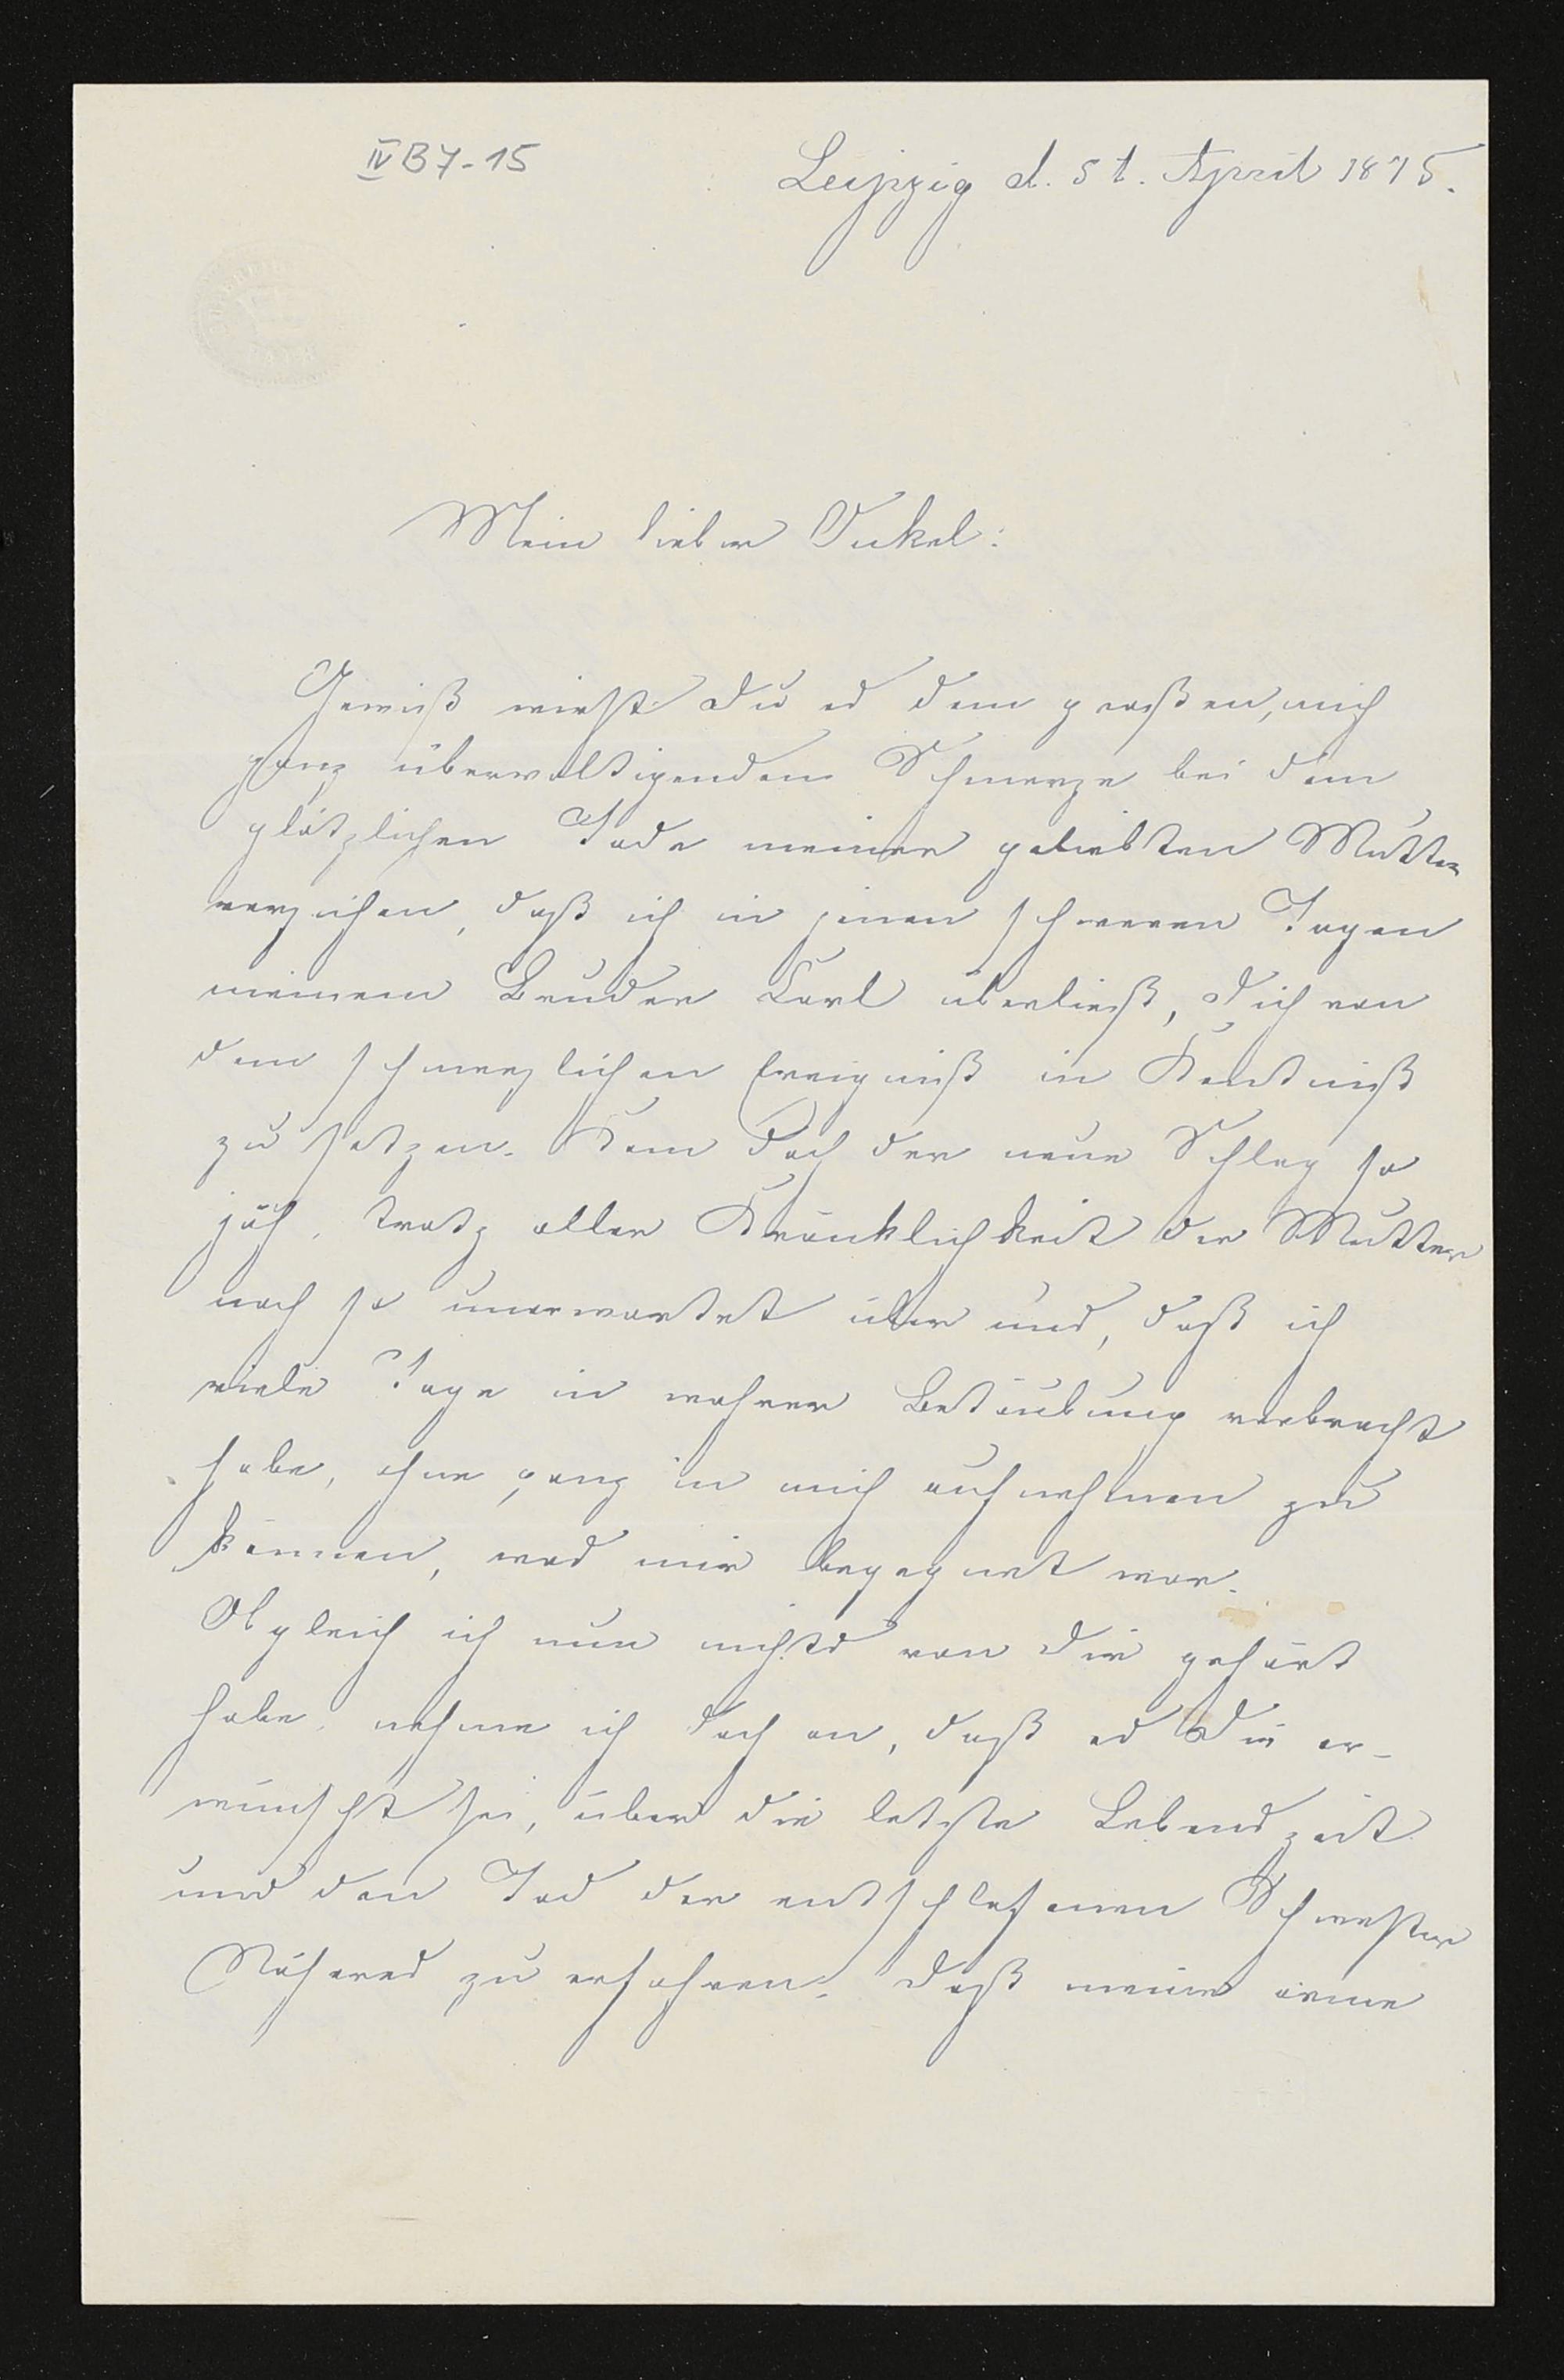 IV B 7-15
Leipzig d. 5 t. April 1875.
Mein lieber Onkel:
Gewiß wirst Du es dem großen, mich
ganz überwältigenden Schmerze bei dem
plötzlichen Tode meiner geliebten Mutter
verzeihen, daß ich in jenen schweren Tagen
meinem Bruder Carl überließ, Dich von
dem schmerzlichen Ereigniß in Kentniß
zu setzen. Kam doch der neue Schlag so
jäh, trotz aller Kränklichkeit der Mutter
noch so unerwartet über uns, daß ich
viele Tage in wahrer Betäubung verbracht
habe, ohne ganz in mich aufnehmen zu
können, was mir begegnet war.
Obgleich ich nun nichts von Dir gehört
habe, nehme ich doch an, daß es Dir er-
wünscht sei, über die letzte Lebenszeit
und den Tod der entschlafenen Schwester
Näheres zu erfahren. Daß meine arme